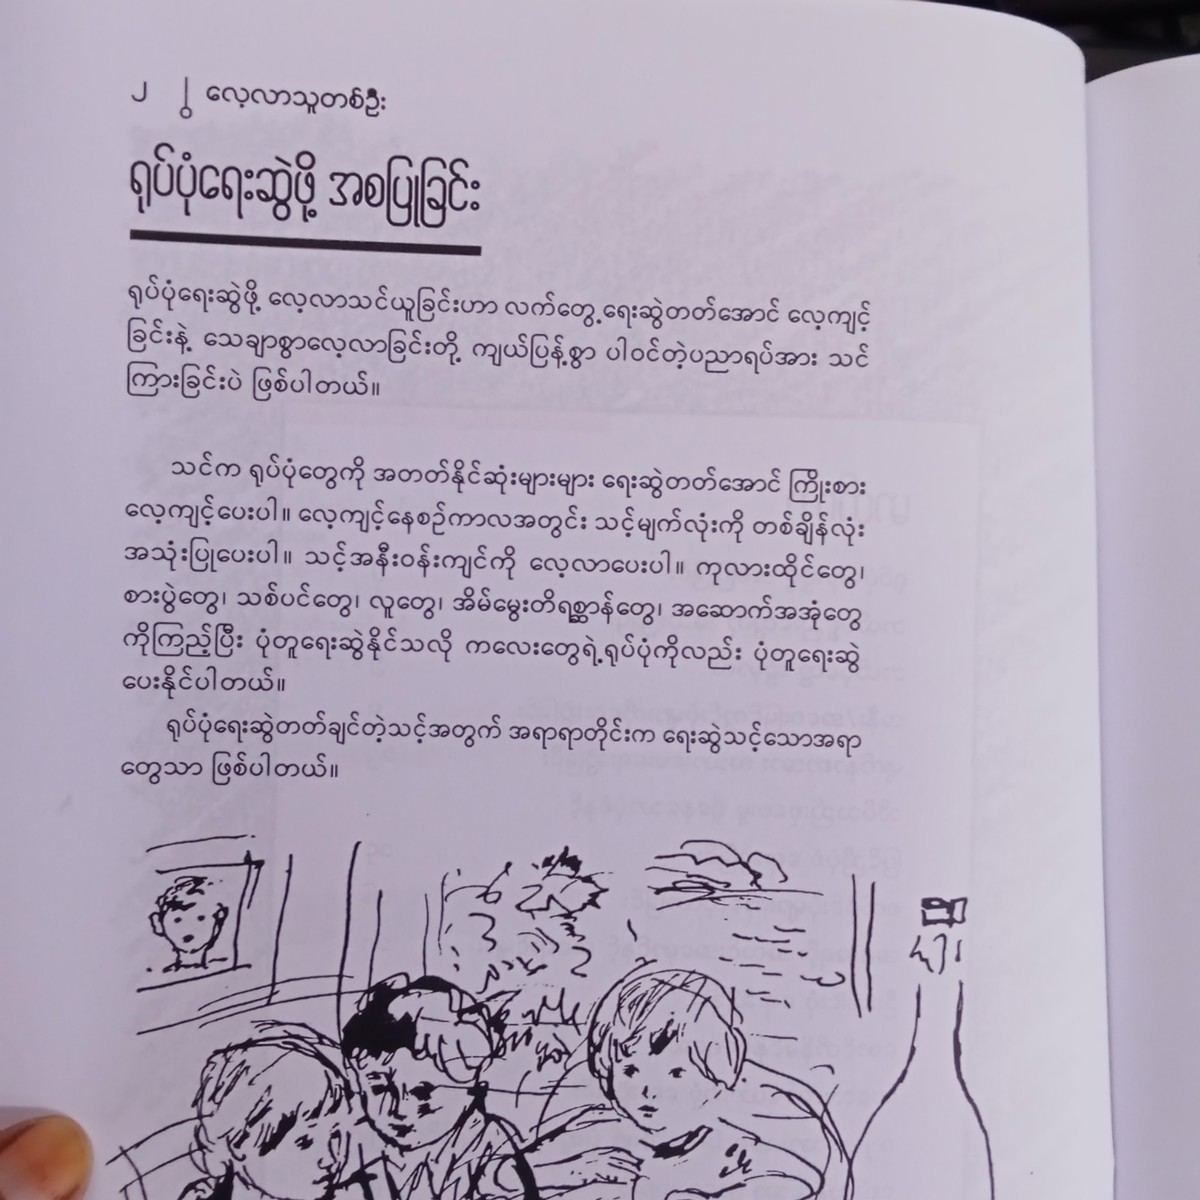 ၂ လေ့လာသူတစ်ဦး
ရုပ်ပုံရေးဆွဲဖို့ အစပြုခြင်း
ရုပ်ပုံရေးဆွဲဖို့ လေ့လာသင်ယူခြင်းဟာ လက်တွေ့ရေးဆွဲတတ်အောင် လေ့ကျင့်
ခြင်းနဲ့ သေချာစွာလေ့လာခြင်းတို့ ကျယ်ပြန့်စွာ ပါဝင်တဲ့ပညာရပ်အား သင်
ကြားခြင်းပဲ ဖြစ်ပါတယ်။
သင်က ရုပ်ပုံတွေကို အတတ်နိုင်ဆုံးများများ ရေးဆွဲတတ်အောင် ကြိုးစား
လေ့ကျင့်ပေးပါ။ လေ့ကျင့်နေစဉ်ကာလအတွင်း သင့်မျက်လုံးကို တစ်ချိန်လုံး
အသုံးပြုပေးပါ။ သင့်အနီးဝန်းကျင်ကို လေ့လာပေးပါ။ ကုလားထိုင်တွေ၊
စားပွဲတွေ၊ သစ်ပင်တွေ၊ လူတွေ၊ အိမ်မွေးတိရစ္ဆာန်တွေ၊ အဆောက်အအုံတွေ
ကိုကြည့်ပြီး ပုံတူရေးဆွဲနိုင်သလို ကလေးတွေရဲ့ရုပ်ပုံကိုလည်း ပုံတူရေးဆွဲ
ပေးနိုင်ပါတယ်။
ရုပ်ပုံရေးဆွဲတတ်ချင်တဲ့သင့်အတွက် အရာရာတိုင်းက ရေးဆွဲသင့်သောအရာ
တွေသာ ဖြစ်ပါတယ်။